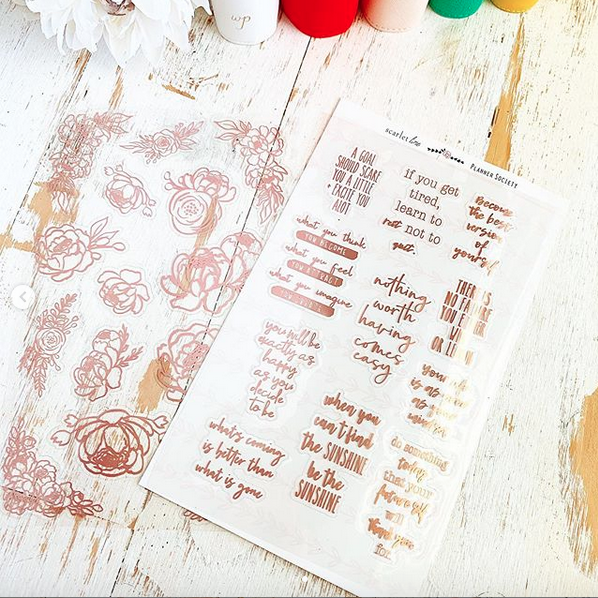 wp
scarlet lime
PLANNER SOCIETY
A GOAL
SHOULD SCARE
YOU A LITTLE
+ EXCITE YOU
A LOT
if you get
tired,
learn to
rest not to
quit.
Become
the best
version
of
yourself
what you think
YOU BECOME
what you feel
YOU ATTRACT
what you imagine
nothing
worth
having
comes
easy
THERE IS
NO FAILURE
YOU EITHER
WIN
OR LEARN
you'll be
exactly as
happy
as you
decide
to be
your life
is as
as your
mindset
when you
can't find
the SUNSHINE
be the
SUNSHINE
do something
today
that your
future self
will
thank you
for.
what's coming
is better than
what is gone